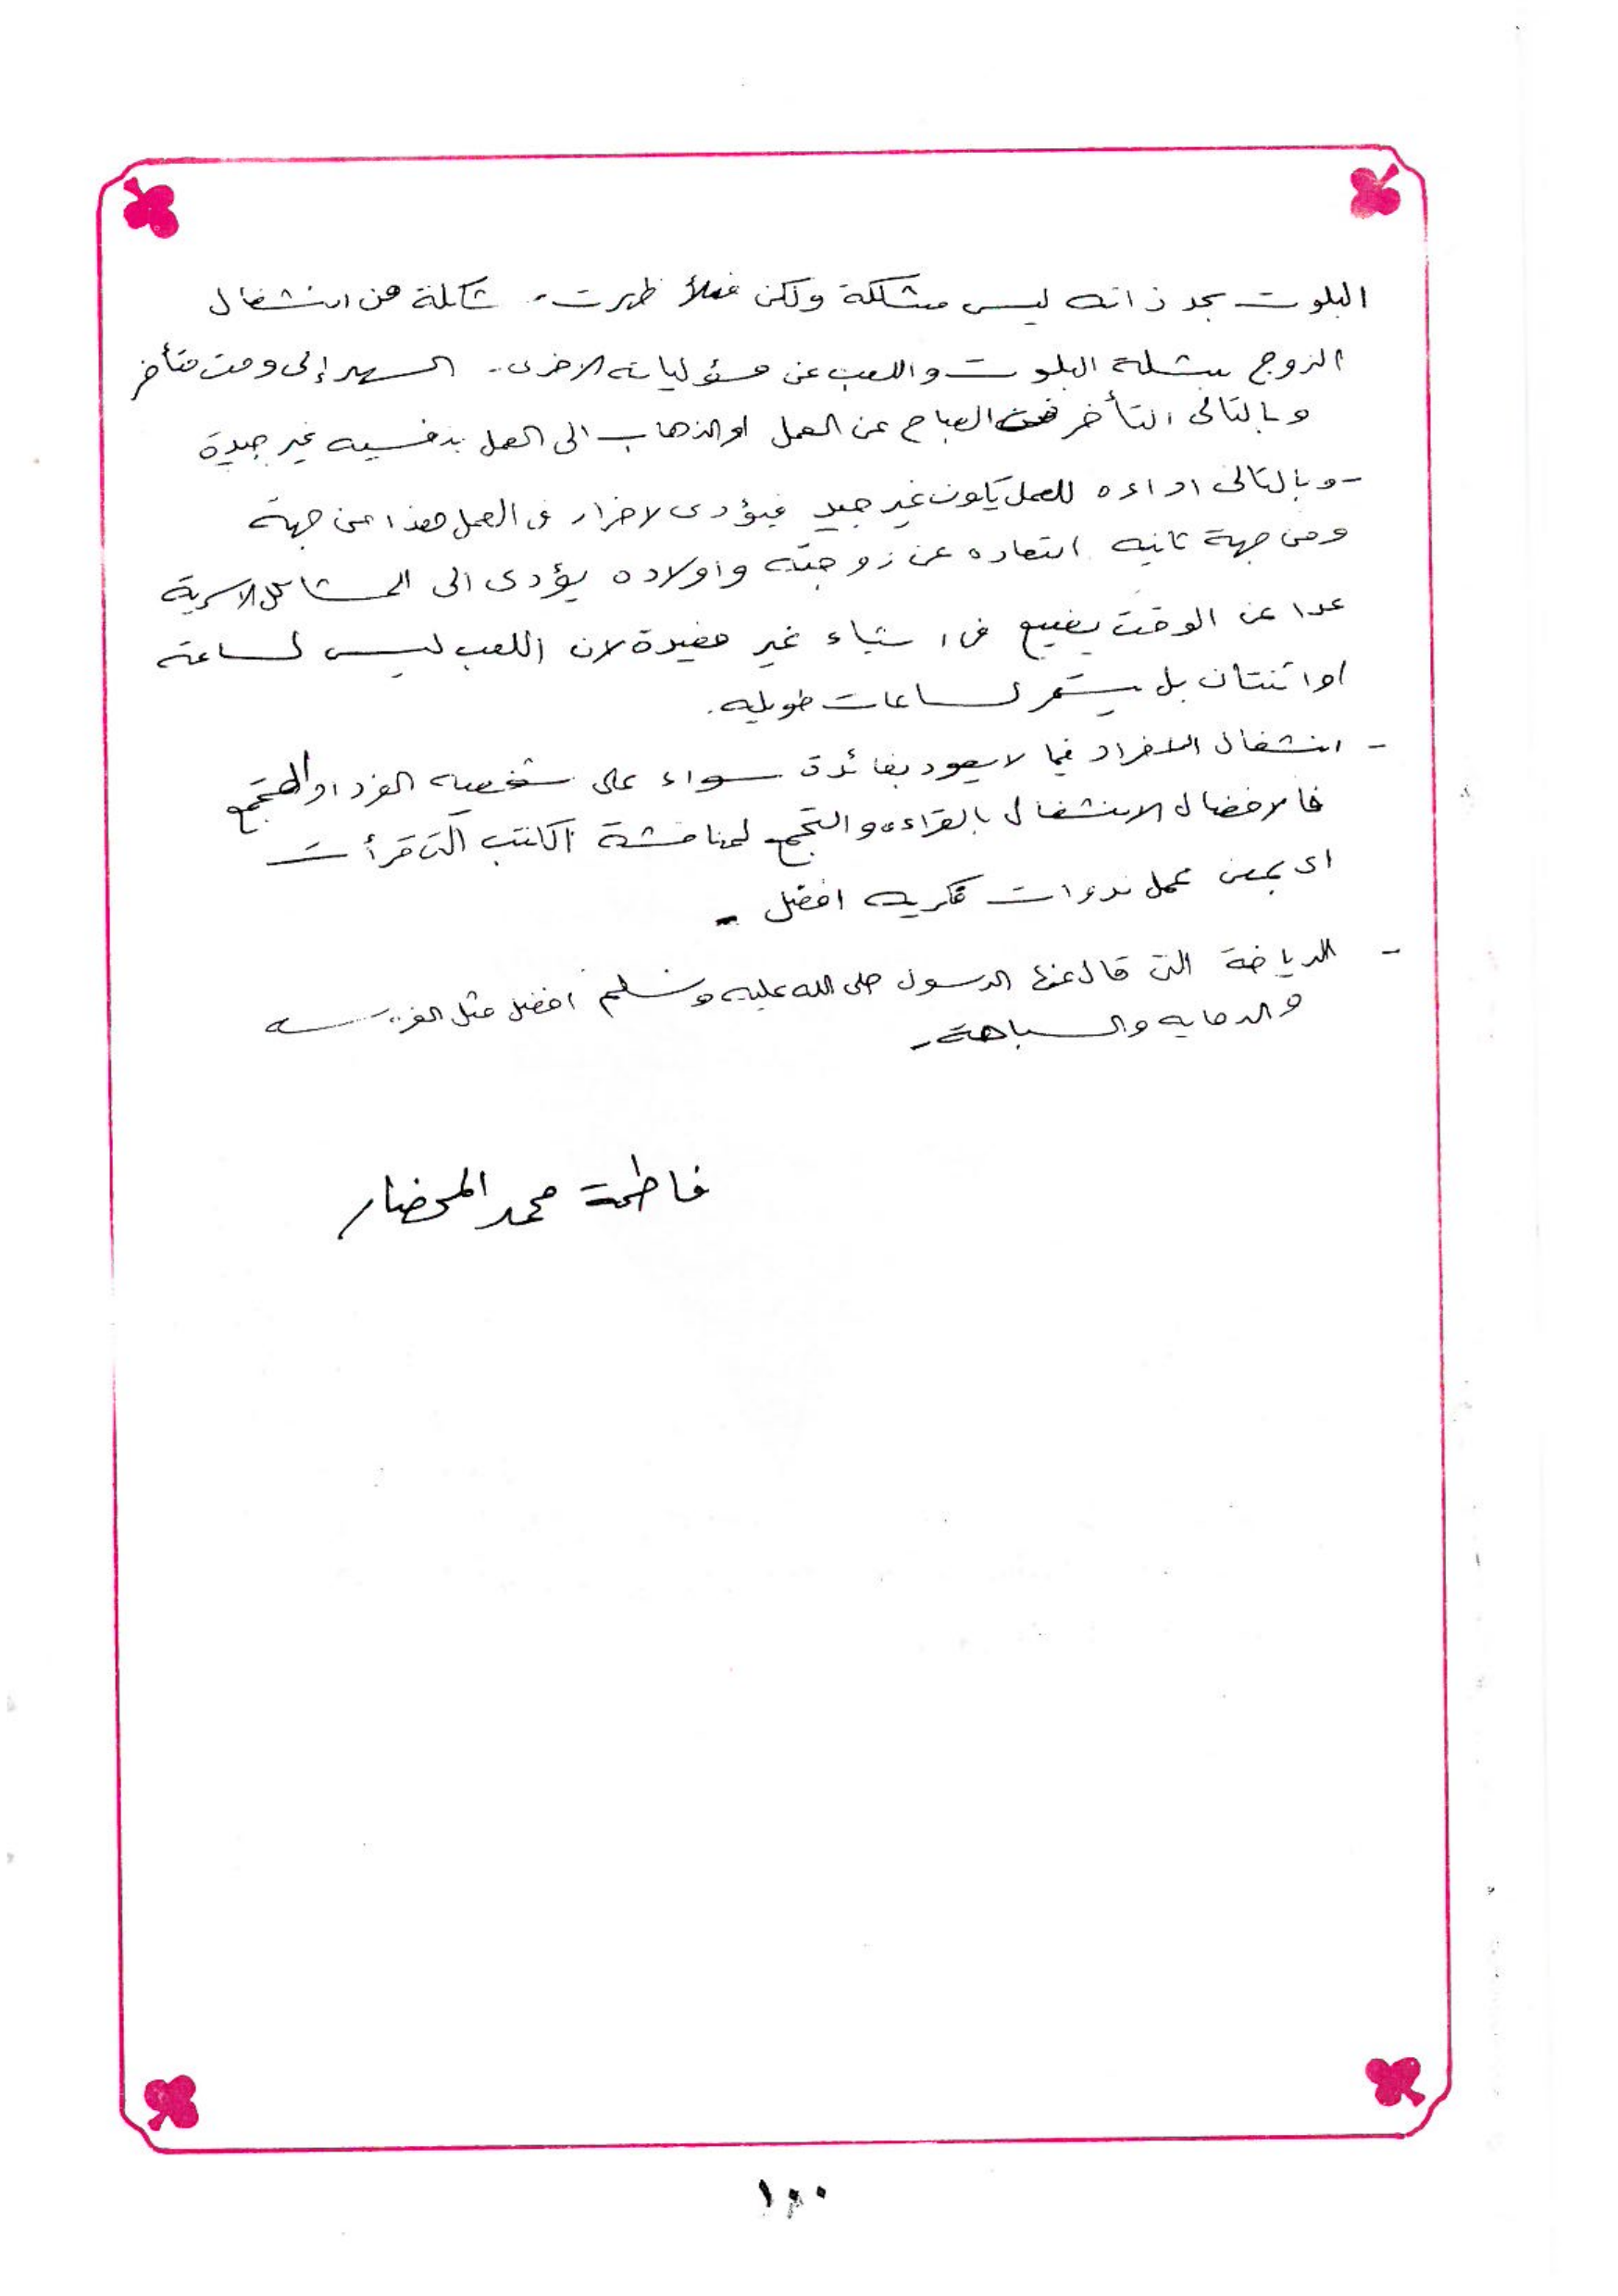 البلوت بحد ذاته ليس مشكلة ولكن فعلاً ظهرت شكلة من انشغال
الزوج بشلة البلوت واللعب عن مسؤلياته الاخرى. السهر إلى وقت متأخر
وبالتالى التأخر فى الصباح عن العمل او الذهاب الى العمل بنفسيه غير جيدة
- وبالتالى اداءه للعمل يكون غير جيد فيؤدى لاضرار فى العمل هذا من جهة
ومن جهة ثانيه ابتعاده عن زوجته واولاده يؤدى الى المشاكل الاسرية
عدا عن الوقت يضيع فى اشياء غير مفيدة لان اللعب ليس لساعة
او اثنتان بل يستمر لساعات طويله.
- انشغال الافراد فيما لا يعود بفائدة سواء على شخصيه الفرد او المجتمع
فالافضال الانشغال بالقراءه والتجمع لمناقشة الكتب التى قرأت
اى بمعنى عمل ندوات فكريه افضل -
- الرياضة التى قال عنها الرسول صلى الله عليه وسلم افضل مثل
والرمايه والسباحة -
فاطمة محمد المحضار
١٠٠